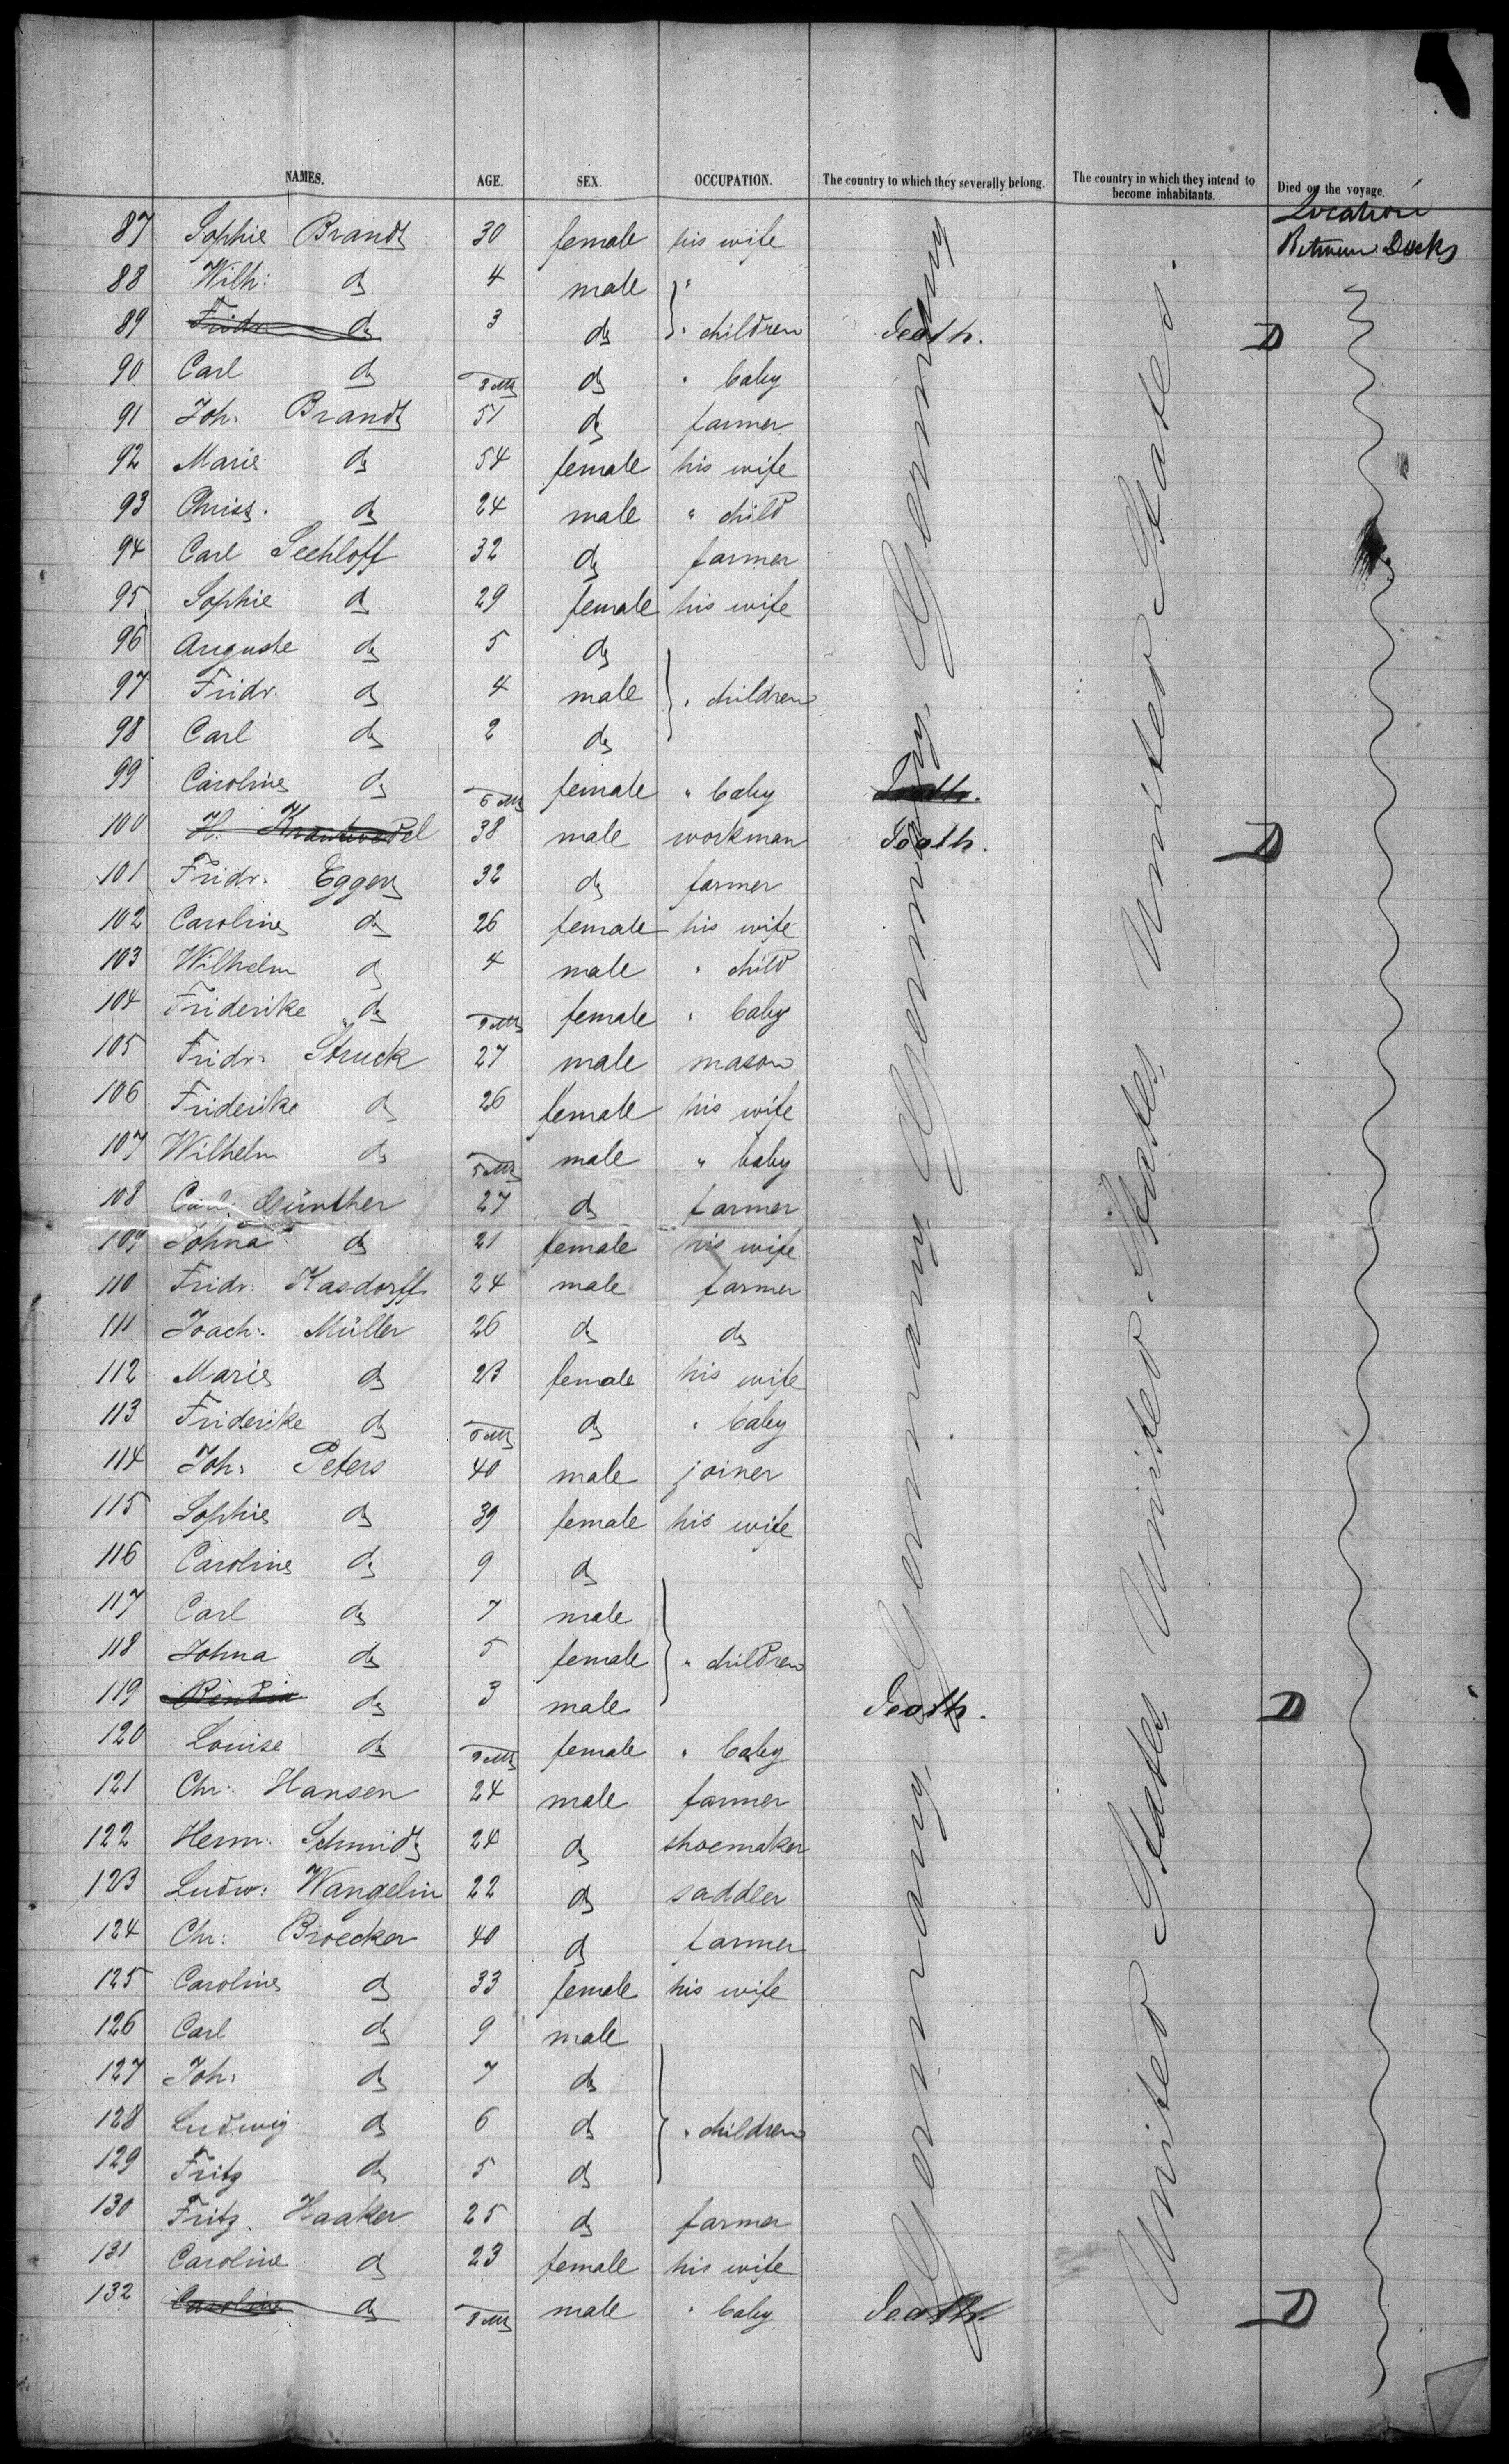 NAMES. AGE. SEX. OCCUPATION. The country to which they severally belong. The country in which they intend to become inhabitants. Died on the voyage.
Location
Between Decks
87 Sophie Brandt 30 female his wife
88 Wilh: do 4 male "
89 Fridr. do 3 do " children Death. D
90 Carl do 8 Mts do " baby
91 Joh. Brandt 51 do farmer
92 Marie do 54 female his wife
93 Christ. do 24 male " child
94 Carl Seehloff 32 do farmer
95 Sophie do 29 female his wife
96 Auguste do 5 do
97 Fridr. do 4 male " children
98 Carl do 2 do
99 Caroline do 6 Mts female " baby Death.
100 H. 38 male workman Death. D
101 Fridr. Eggers 32 do farmer
102 Caroline do 26 female his wife
103 Wilhelm do 4 male " child
104 Friderike do 9 Mts female " baby
105 Fridr. Struck 27 male mason
106 Friderike do 26 female his wife
107 Wilhelm do 5 Mts male " baby
108 Carl. Günther 27 do farmer
109 Johna do 21 female his wife
110 Fridr. Kasdorff 24 male farmer
111 Joach: Müller 26 do do
112 Marie do 23 female his wife
113 Friderike do Mts do " baby
114 Joh. Peters 40 male joiner
115 Sophie do 39 female his wife
116 Caroline do 9 do
117 Carl do 7 male
118 Johna do 5 female " children
119 do 3 male Death. D
120 Louise do 9 Mts female " baby
121 Chr: Hansen 24 male farmer
122 Herm: Schmidt 24 do shoemaker
123 Ludw: Wangelin 22 do saddler
124 Chr: Broecker 40 do farmer
125 Caroline do 33 female his wife
126 Carl do 9 male
127 Joh. do 7 do
128 Ludwig do 6 do " children
129 Fritz do 5 do
130 Fritz. Haaker 25 do farmer
131 Caroline do 23 female his wife
132 Caroline do 8 Mts male " baby Death. D
Germany. Germany, Germany. Germany
United States United-States, United States.